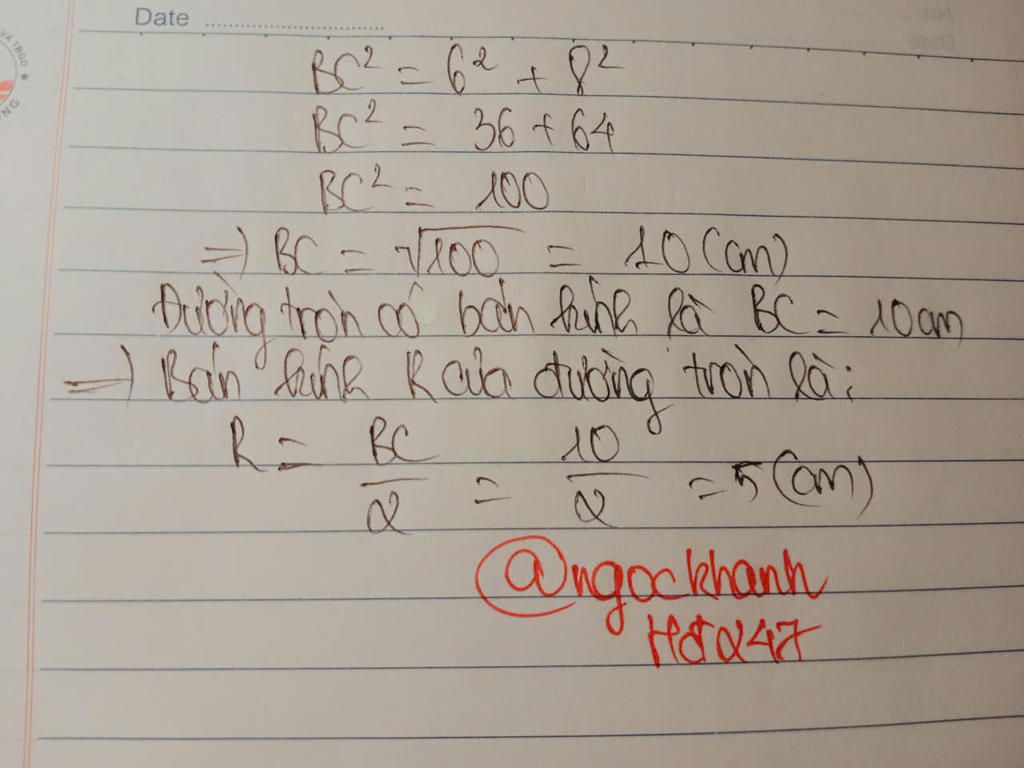 Date
BC² = 6² + 8²
BC² = 36 + 64
BC² = 100
=> BC = √100 = 10 (cm)
Đường tròn có bán kính là BC = 10cm
=> Bán kính R của đường tròn là:
R = BC/2 = 10/2 = 5 (cm)
@ngockhanh
Hđ247